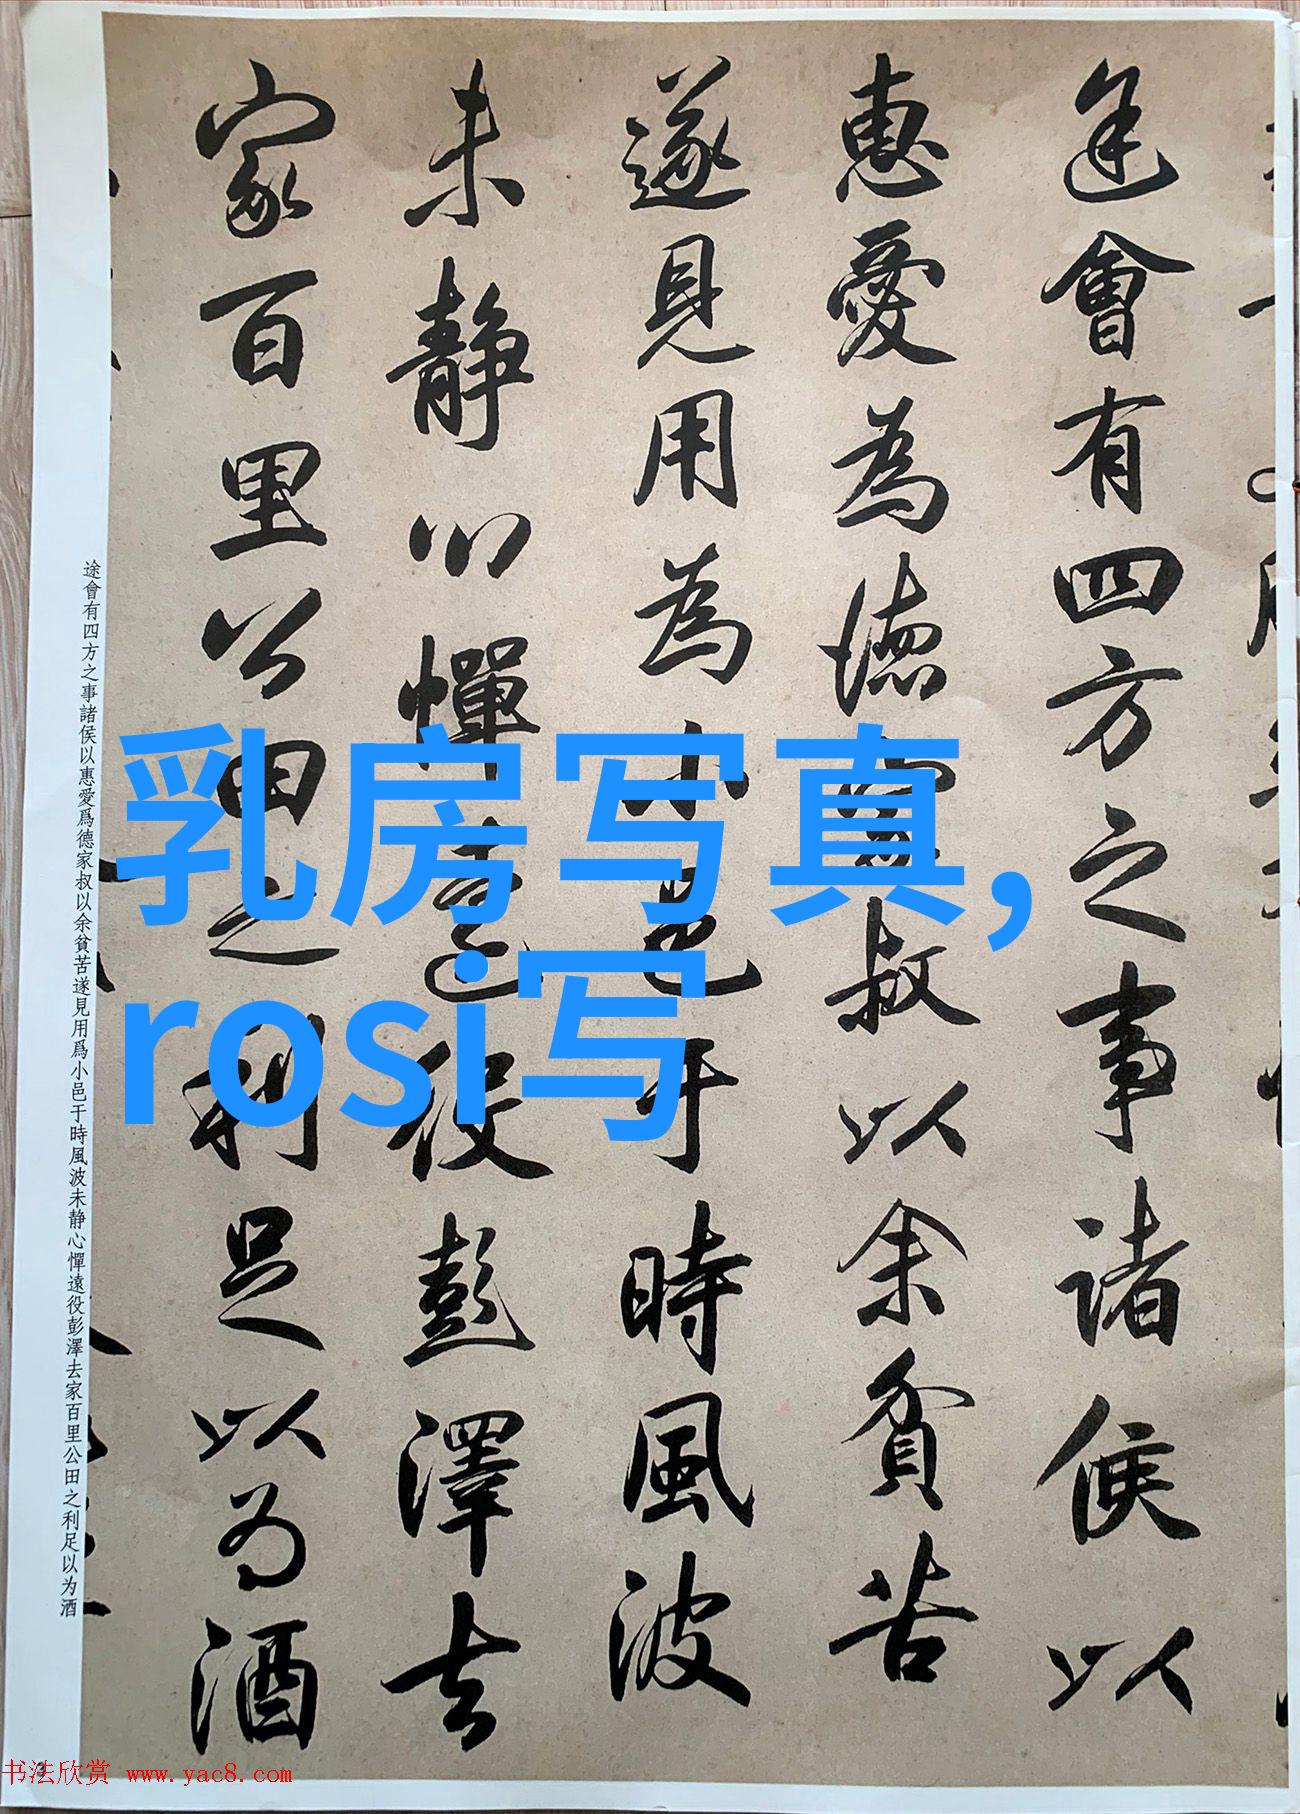 途會有四方之事諸侯以
惠愛為德家叔以余貧苦
遂見用為小邑于時風波
未静心憚遠役彭澤去
家百里公田之利足以为酒
途會有四方之事諸侯以惠愛爲德家叔以余貧苦遂見用爲小邑于時風波未静心憚遠役彭澤去家百里公田之利足以为酒
乳房写真,
rosi写
书法欣赏 www.yac8.com